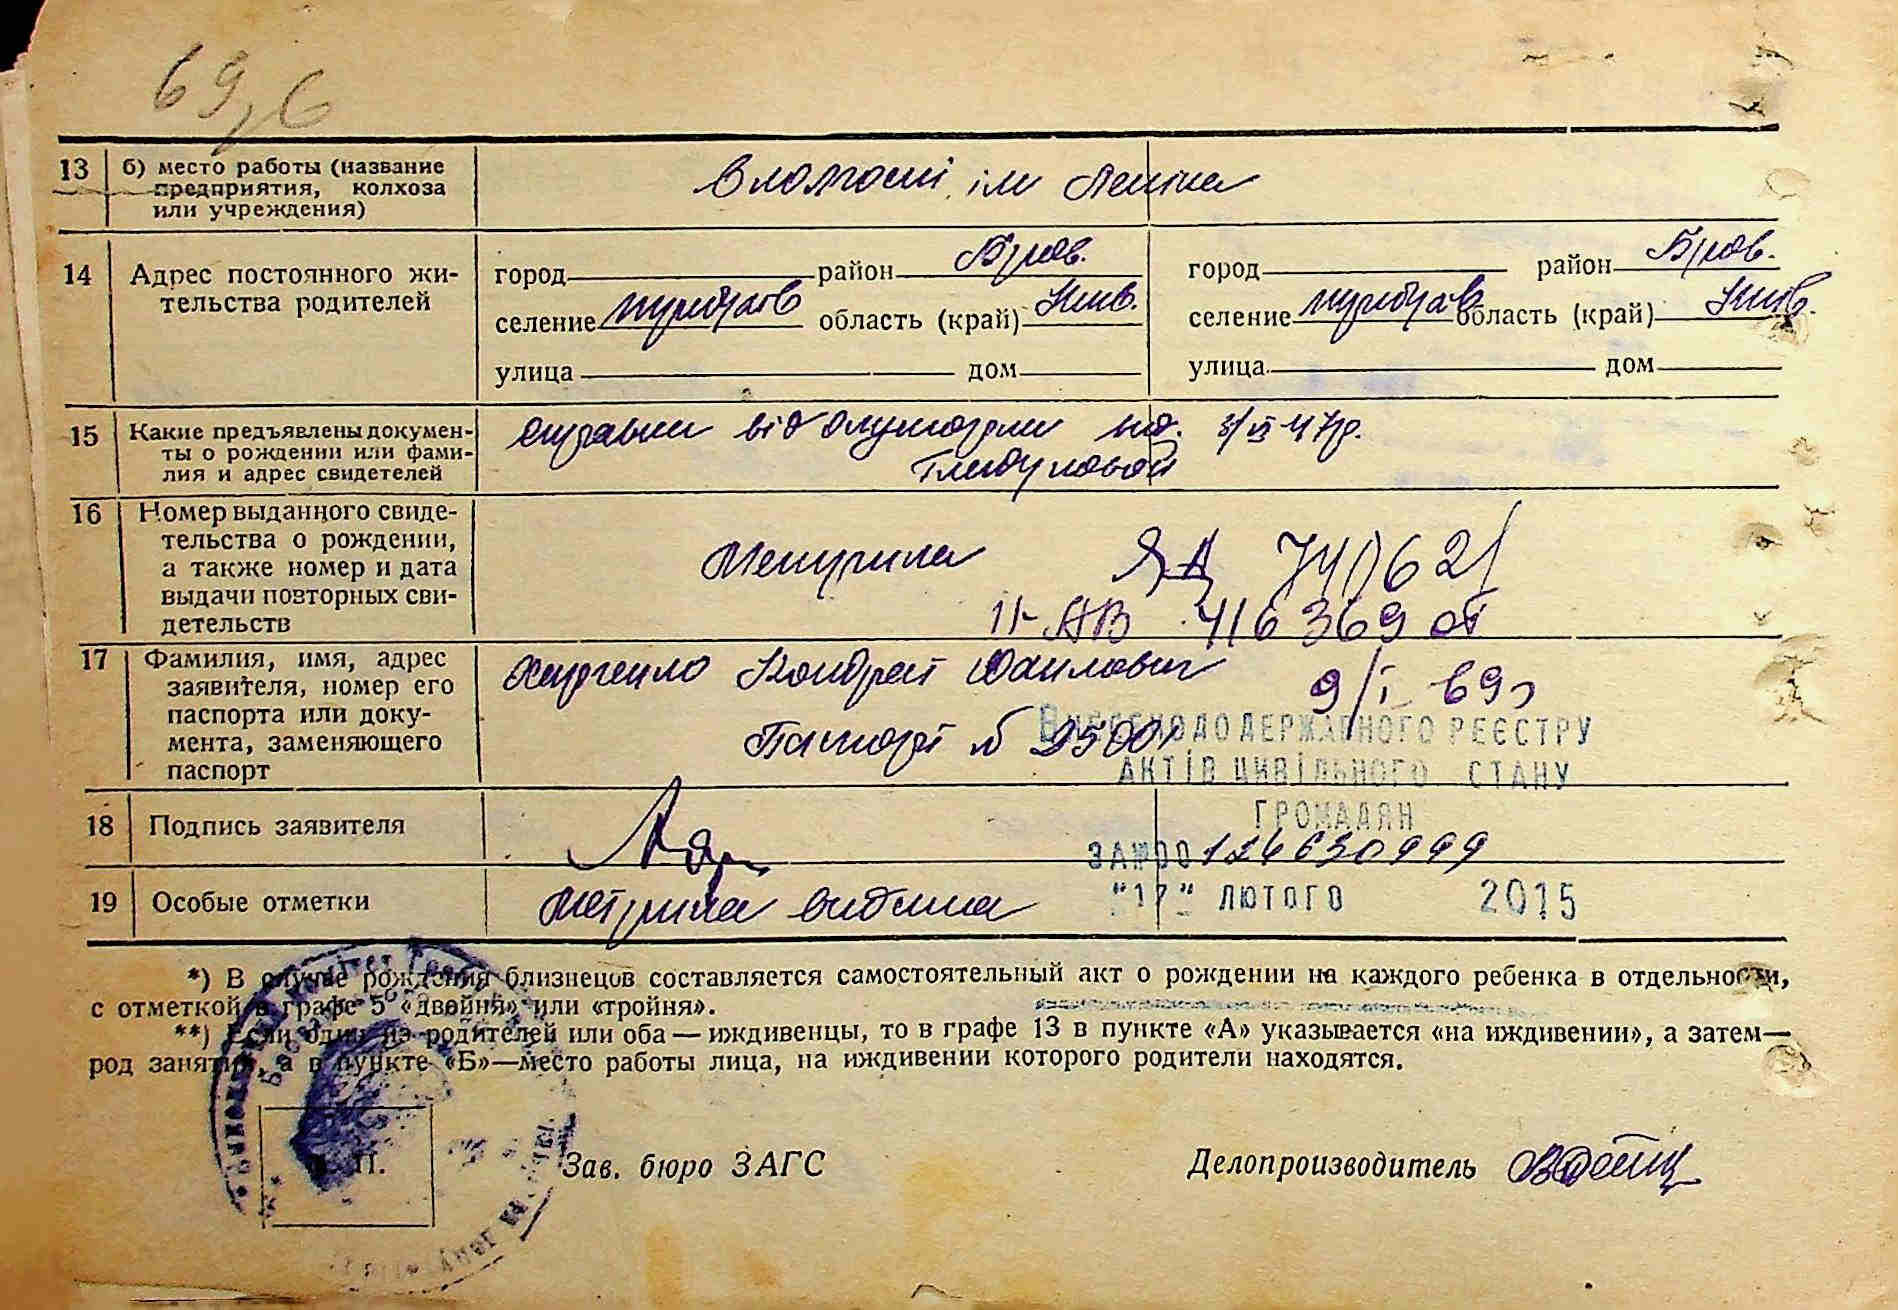 69,6
13 б) место работы (название предприятия, колхоза или учреждения)
В колгоспі ім Леніна
14 Адрес постоянного жительства родителей
город район Бров. город район Бров.
селение область (край) Київ. селение область (край) Київ.
улица дом улица дом
15 Какие предъявлены документы о рождении или фамилия и адрес свидетелей
справка від акушерки
16 Номер выданного свидетельства о рождении, а также номер и дата выдачи повторных свидетельств
Метрика ЯД 740621
II-АВ 416369 от
9/I 69г
17 Фамилия, имя, адрес заявителя, номер его паспорта или документа, заменяющего паспорт
Кондрат
Паспорт №
ВНЕСЕНО ДО ДЕРЖАВНОГО РЕЄСТРУ
АКТІВ ЦИВІЛЬНОГО СТАНУ
ГРОМАДЯН
18 Подпись заявителя
ЗА №00124630999
19 Особые отметки
Метрика видана
"17" ЛЮТОГО 2015
*) В случае рождения близнецов составляется самостоятельный акт о рождении на каждого ребенка в отдельности,
с отметкой в графе 5 «двойня» или «тройня».
**) Если один из родителей или оба — иждивенцы, то в графе 13 в пункте «А» указывается «на иждивении», а затем—
род занятий, а в пункте «Б»—место работы лица, на иждивении которого родители находятся.
М. П.
Зав. бюро ЗАГС Делопроизводитель